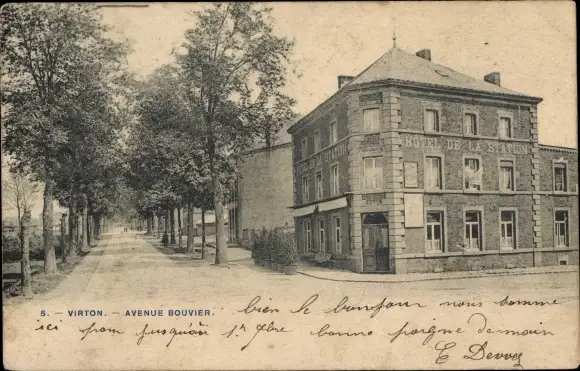 HOTEL DE LA STATION
5. — VIRTON. — AVENUE BOUVIER.
bien le bonjour nous somme
ici jusqu'au 1r 7bre bonne poigne de main
E Devvez